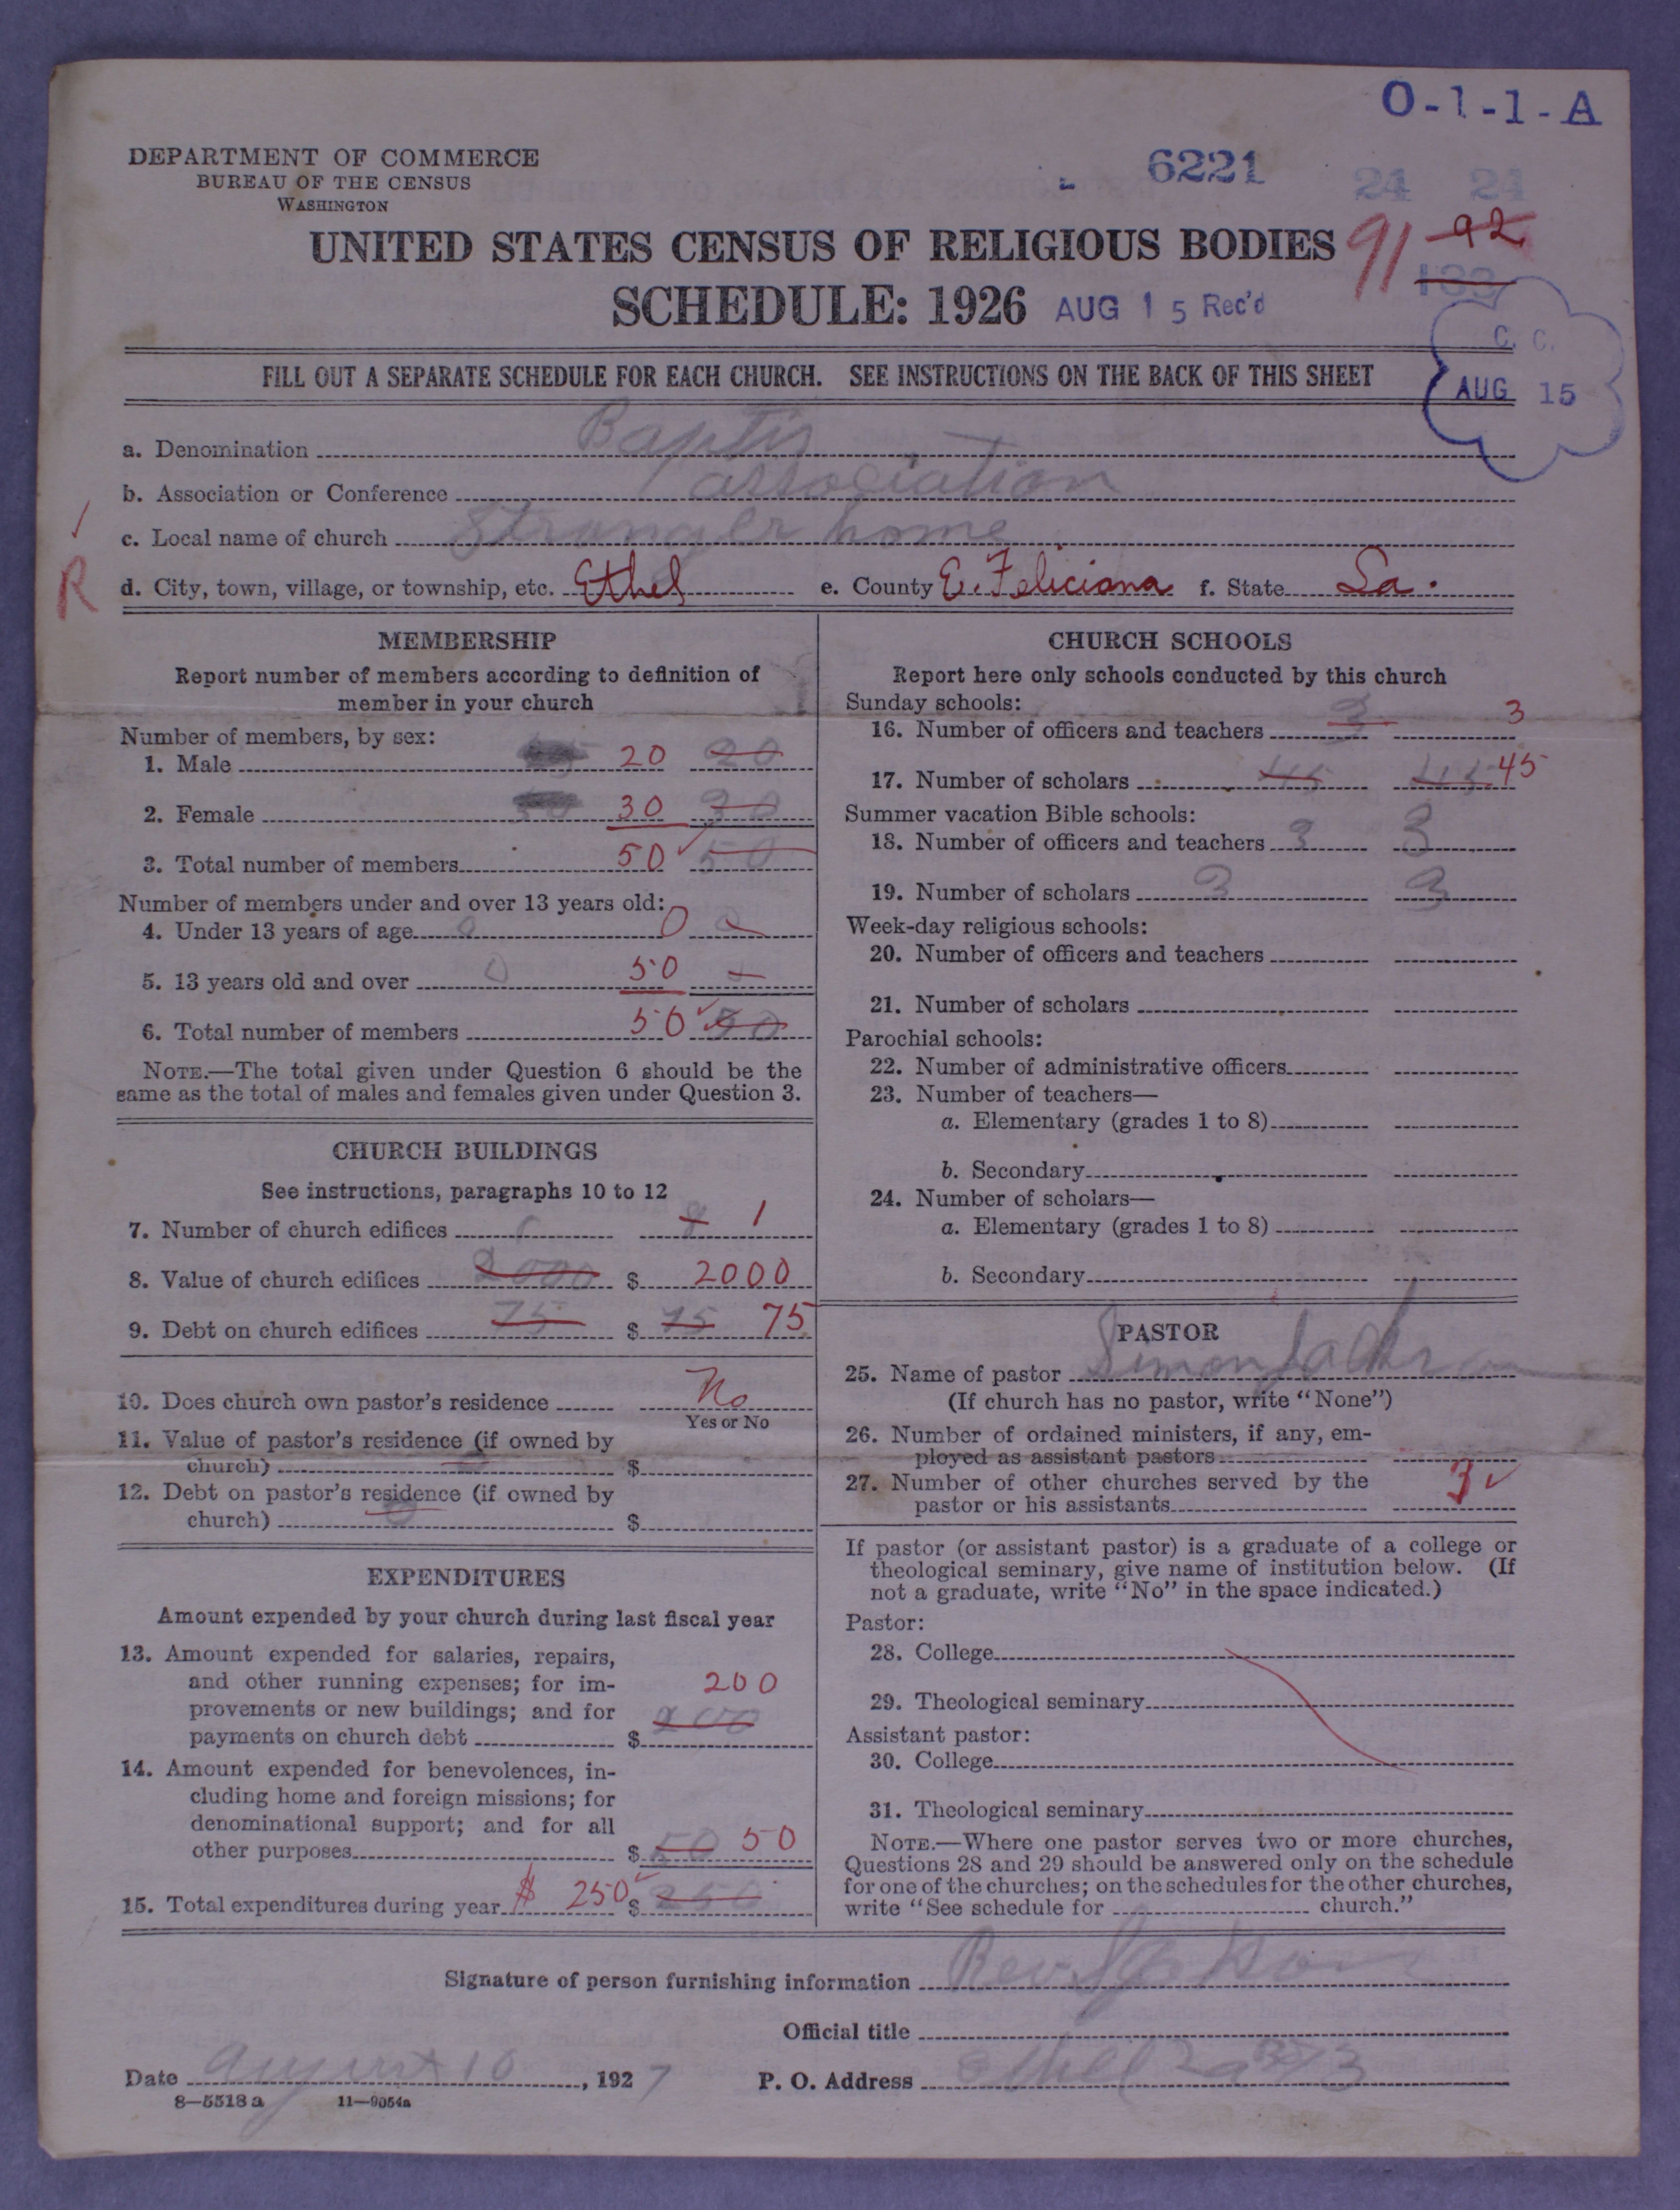 O-1-1-A
DEPARTMENT OF COMMERCE
BUREAU OF THE CENSUS
WASHINGTON
6221
24 24
UNITED STATES CENSUS OF RELIGIOUS BODIES
91 92
SCHEDULE: 1926
AUG 15 Rec'd
C. C.
AUG 15
FILL OUT A SEPARATE SCHEDULE FOR EACH CHURCH. SEE INSTRUCTIONS ON THE BACK OF THIS SHEET
a. Denomination Baptis
b. Association or Conference association
c. Local name of church Stranger home
R
d. City, town, village, or township, etc. Ethel e. County E. Feliciana f. State La.
MEMBERSHIP
Report number of members according to definition of
member in your church
Number of members, by sex:
1. Male 20 20
2. Female 30 30
3. Total number of members 50 50
Number of members under and over 13 years old:
4. Under 13 years of age 0 0 0
5. 13 years old and over 0 50
6. Total number of members 50 50
NOTE.—The total given under Question 6 should be the
same as the total of males and females given under Question 3.
CHURCH BUILDINGS
See instructions, paragraphs 10 to 12
7. Number of church edifices 1
8. Value of church edifices 2000 $ 2000
9. Debt on church edifices 75 $ 75 75
10. Does church own pastor's residence No
Yes or No
11. Value of pastor's residence (if owned by
church) $
12. Debt on pastor's residence (if owned by
church) 0 $
EXPENDITURES
Amount expended by your church during last fiscal year
13. Amount expended for salaries, repairs,
and other running expenses; for im-
provements or new buildings; and for
payments on church debt $ 200 200
14. Amount expended for benevolences, in-
cluding home and foreign missions; for
denominational support; and for all
other purposes $ 50 50
15. Total expenditures during year $ 250 $ 250
CHURCH SCHOOLS
Report here only schools conducted by this church
Sunday schools:
16. Number of officers and teachers 3 3
17. Number of scholars 45 45 45
Summer vacation Bible schools:
18. Number of officers and teachers 3 3
19. Number of scholars 3 3
Week-day religious schools:
20. Number of officers and teachers
21. Number of scholars
Parochial schools:
22. Number of administrative officers
23. Number of teachers—
a. Elementary (grades 1 to 8)
b. Secondary
24. Number of scholars—
a. Elementary (grades 1 to 8)
b. Secondary
PASTOR
25. Name of pastor Simon
(If church has no pastor, write "None")
26. Number of ordained ministers, if any, em-
ployed as assistant pastors
27. Number of other churches served by the
pastor or his assistants 3
If pastor (or assistant pastor) is a graduate of a college or
theological seminary, give name of institution below. (If
not a graduate, write "No" in the space indicated.)
Pastor:
28. College
29. Theological seminary
Assistant pastor:
30. College
31. Theological seminary
NOTE.—Where one pastor serves two or more churches,
Questions 28 and 29 should be answered only on the schedule
for one of the churches; on the schedules for the other churches,
write "See schedule for church."
Signature of person furnishing information Rev.
Official title
Date August 10, 1927 P. O. Address Ethel La
8—5518a 11—9054a